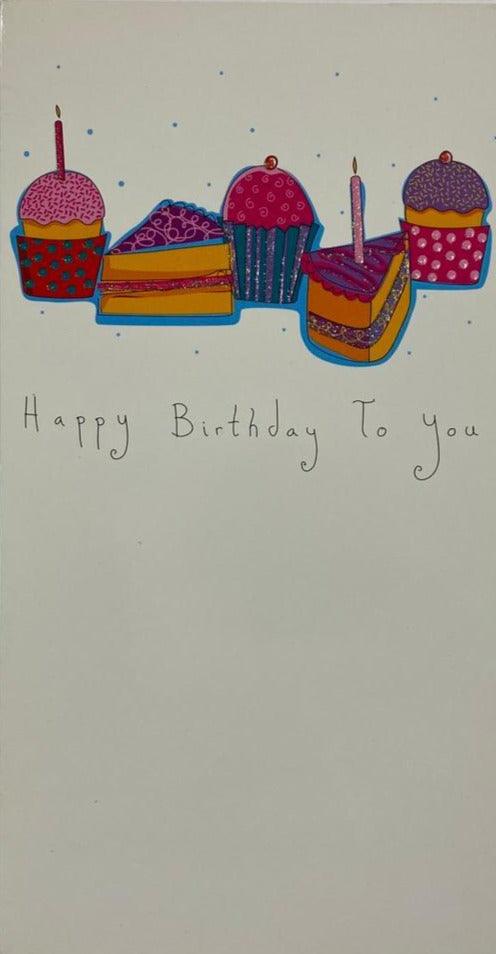 Happy Birthday To You